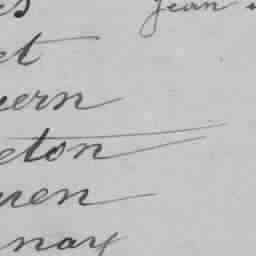 es Jean
et
uern
eton
uen
nay